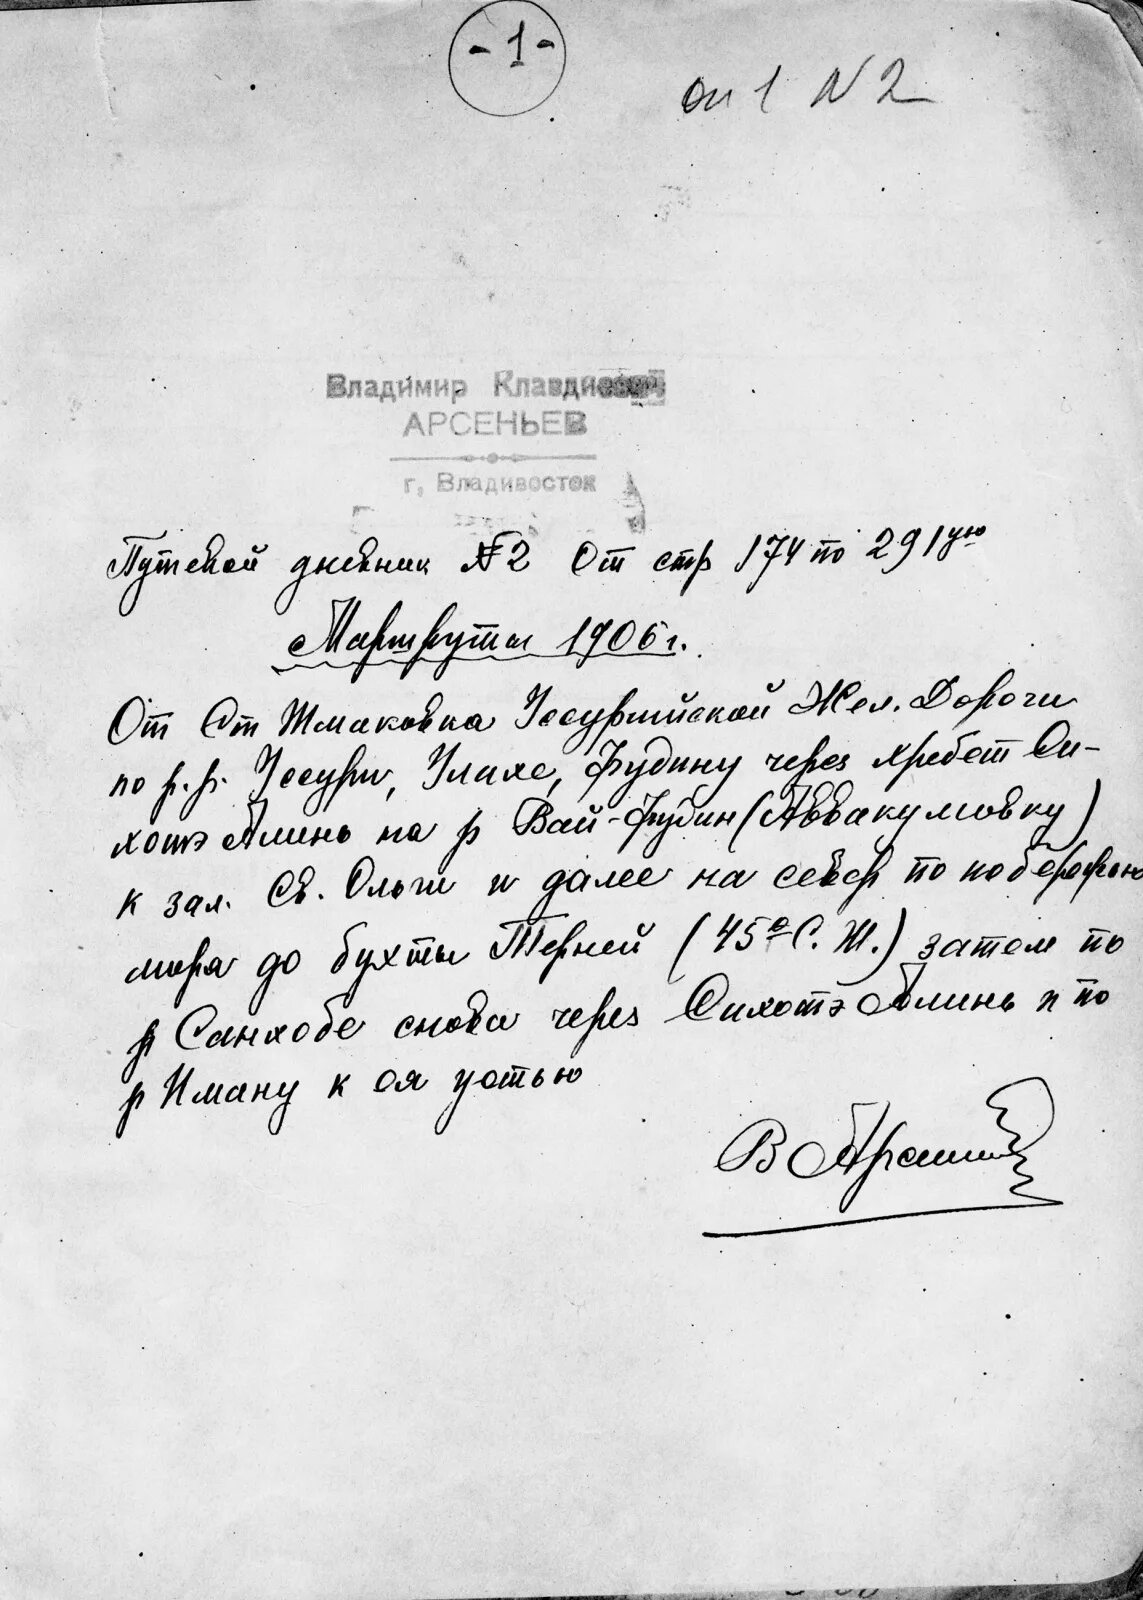 - 1 -
оп 1 N 2
Владимир Клавдиевич
АРСЕНЬЕВ
г, Владивосток
Путевой дневник №2 От стр 174 по 291ую
Маршруты 1906 г.
От Ст Шмаковка Уссурийской Жел. Дороги
по р.р. Уссури, Улахе, Фудину через хребет Си-
хотэ Алинь на р Вай-Фудин (Аввакумовку)
к зал. Св. Ольги и далее на север по побережью
моря до бухты Терней (45° С. Ш.) затем по
р Санхобе снова через Сихотэ Алинь и по
р Иману к ея устью
В Арсеньев